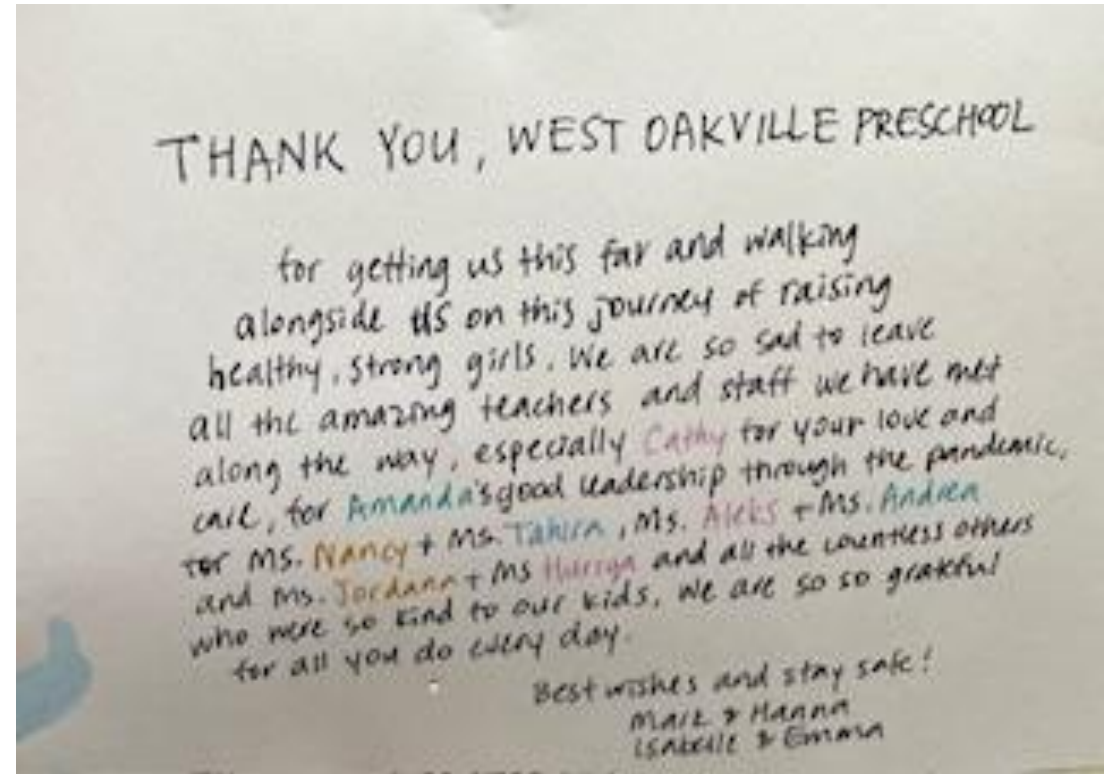 THANK YOU, WEST OAKVILLE PRESCHOOL
for getting us this far and walking
alongside us on this journey of raising
healthy, strong girls. We are so sad to leave
all the amazing teachers and staff we have met
along the way, especially Cathy for your love and
care, for Amanda's good leadership through the pandemic,
for Ms. Nancy + Ms. Tahira, Ms. Aleks + Ms. Andrea
and Ms. Jordann + Ms and all the countless others
who were so kind to our kids. We are so so grateful
for all you do every day.
Best wishes and stay safe!
& Hanna
Isabelle & Emma